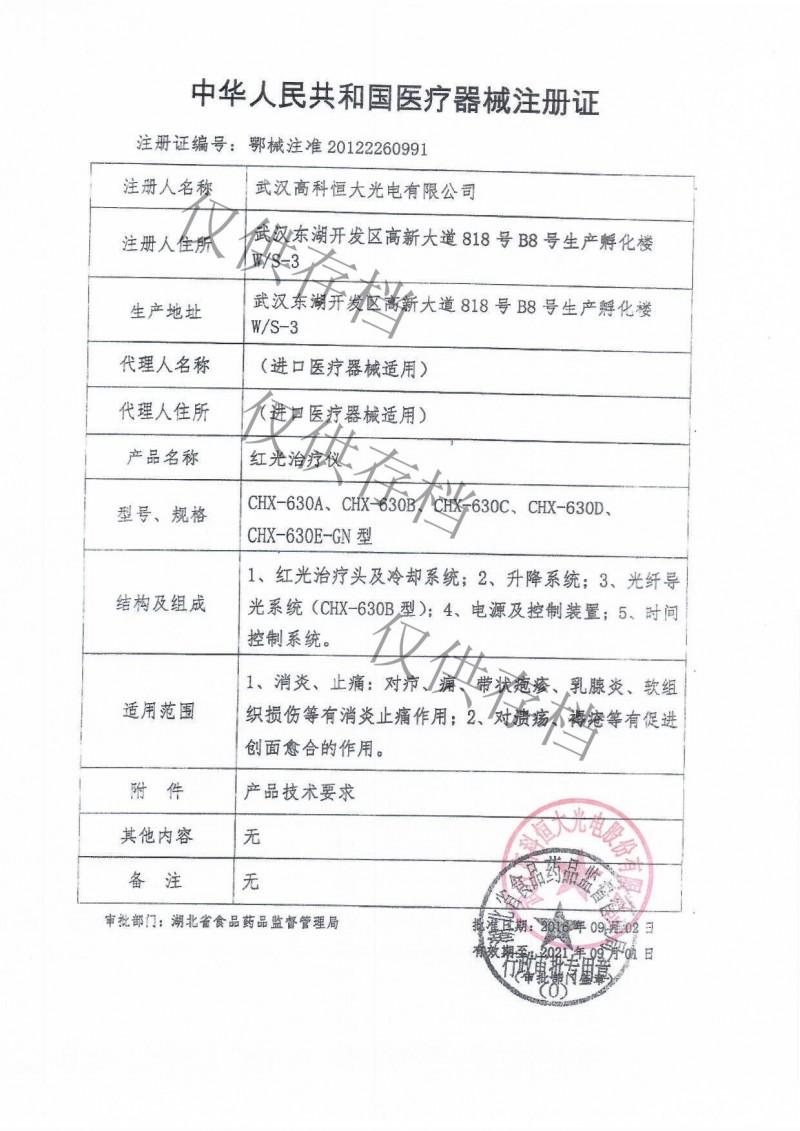 中华人民共和国医疗器械注册证
注册证编号：鄂械注准 20122260991
注册人名称 武汉高科恒大光电有限公司
注册人住所 武汉东湖开发区高新大道 818 号 B8 号生产孵化楼
W/S-3
生产地址 武汉东湖开发区高新大道 818 号 B8 号生产孵化楼
W/S-3
代理人名称 （进口医疗器械适用）
代理人住所 （进口医疗器械适用）
产品名称 红光治疗仪
型号、规格 CHX-630A、CHX-630B、CHX-630C、CHX-630D、
CHX-630E-GN 型
结构及组成 1、红光治疗头及冷却系统；2、升降系统；3、光纤导
光系统（CHX-630B 型）；4、电源及控制装置；5、时间
控制系统。
适用范围 1、消炎、止痛：对疖、痈、带状疱疹、乳腺炎、软组
织损伤等有消炎止痛作用；2、对溃疡、褥疮等有促进
创面愈合的作用。
附 件 产品技术要求
其他内容 无
备 注 无
审批部门：湖北省食品药品监督管理局
批准日期：2016 年 09 月 02 日
有效期至：2021 年 09 月 01 日
（审批部门盖章）
科恒大光电股份有限
湖北省食品药品监督管理局
行政审批专用章
(0)
仅供存档
仅供存档
仅供存档